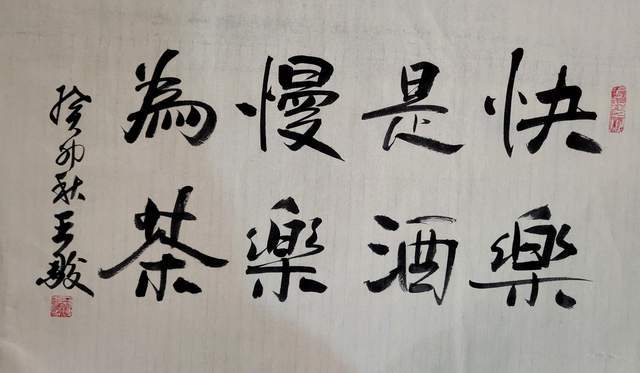 快樂
是酒
慢樂
為茶
癸卯秋王駿